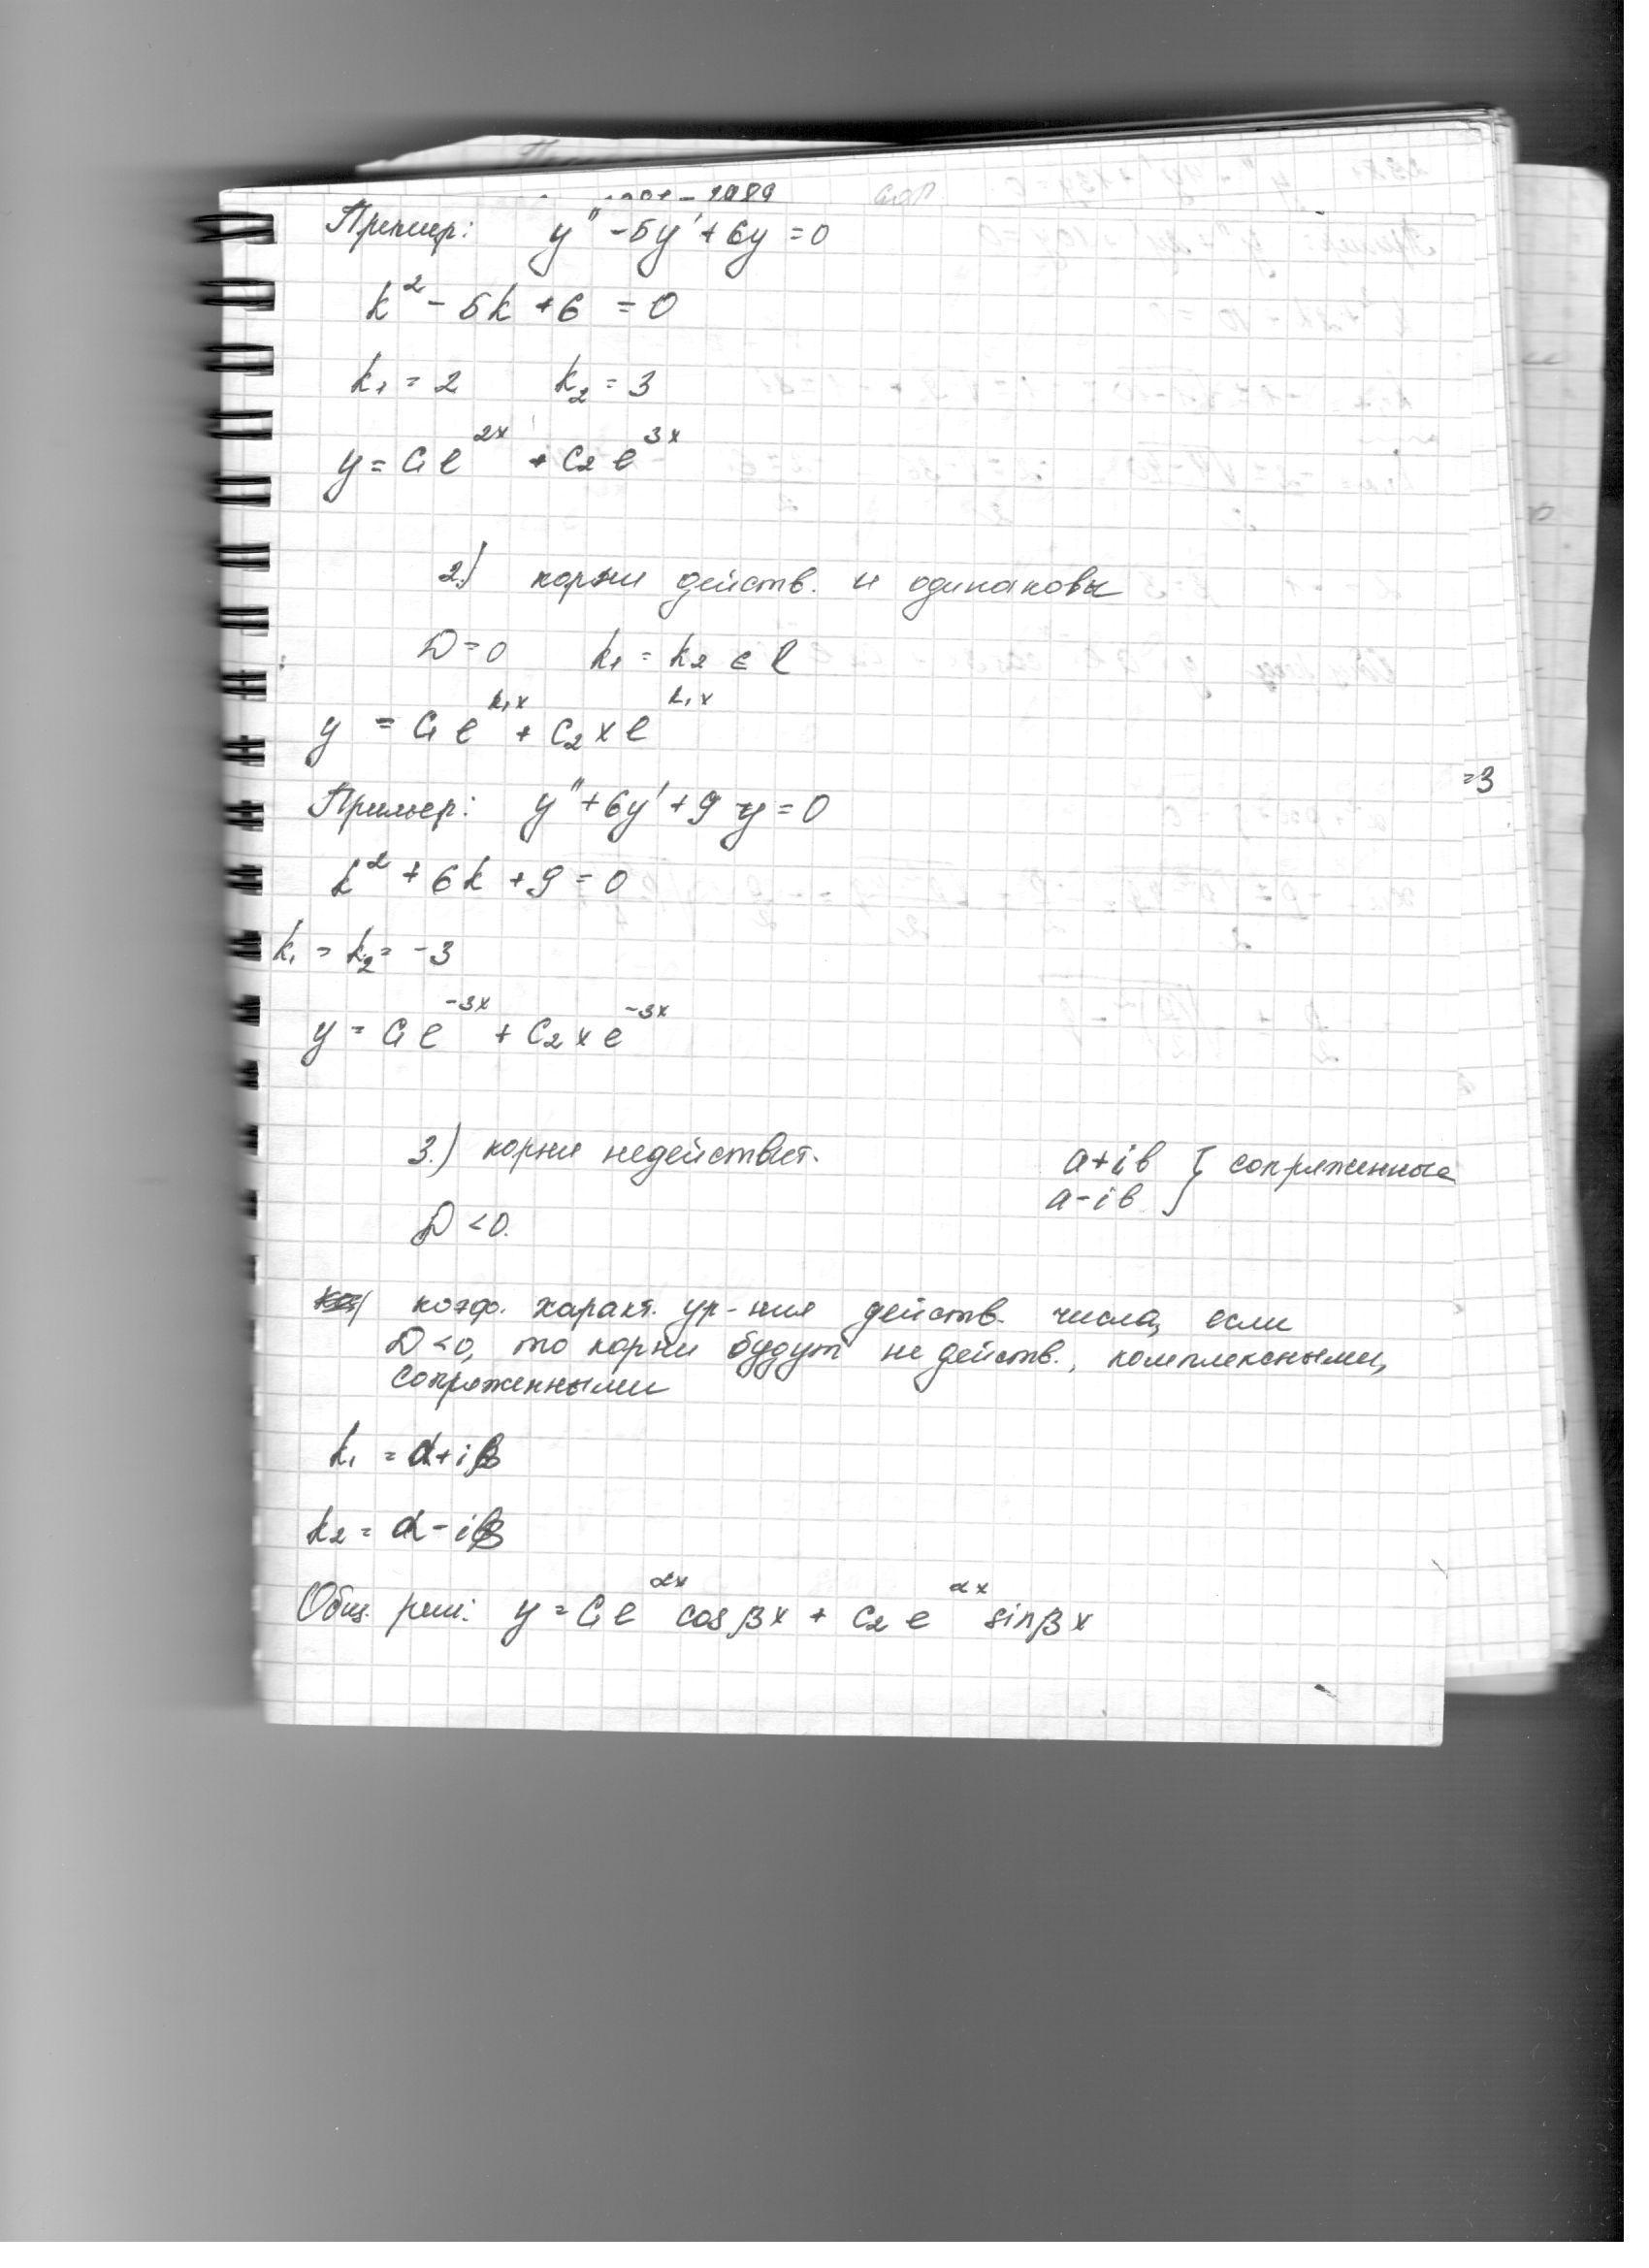 Пример: y'' - 5y' + 6y = 0
k² - 5k + 6 = 0
k₁ = 2 k₂ = 3
y = C₁e^{2x} + C₂e^{3x}
2.) корни действ. и одинаковы
D = 0 k₁ = k₂ ∈ R
y = C₁e^{k₁x} + C₂xe^{k₁x}
Пример: y'' + 6y' + 9y = 0
=3
k² + 6k + 9 = 0
k₁ = k₂ = -3
y = C₁e^{-3x} + C₂xe^{-3x}
3.) корни недействит. a+ib } сопряженные
a-ib
D < 0.
коэф. характ. ур-ния действ. числа, если
D < 0, то корни будут не действ., комплексными,
сопряженными
k₁ = α + iβ
k₂ = α - iβ
Общ. реш: y = C₁e^{αx} cos βx + C₂e^{αx} sin βx